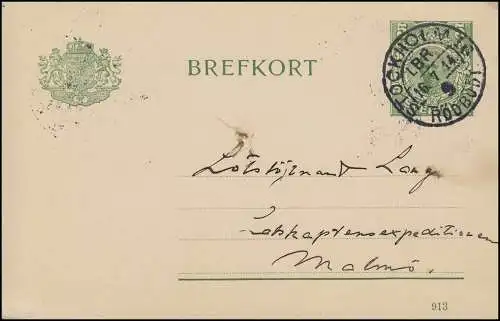 BREFKORT
STOCKHOLM 16
LBR
16 7 14
RÖDBODT.
Lotslöjtnant Lang
Lotskaptensexpeditionen
Malmö.
913